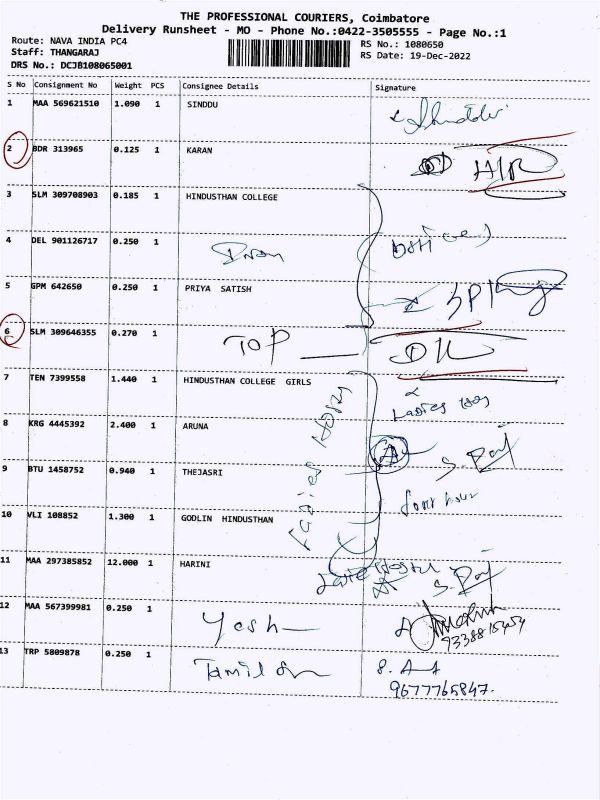 THE PROFESSIONAL COURIERS, Coimbatore
Delivery Runsheet - MO - Phone No.:0422-3505555 - Page No.:1
Route: NAVA INDIA PC4
RS No.: 1080650
Staff: THANGARAJ
RS Date: 19-Dec-2022
DRS No.: DCJB108065001
S No Consignment No Weight PCS Consignee Details Signature
1 MAA 569621510 1.090 1 SINDDU
2 BDR 313965 0.125 1 KARAN
3 SLM 309708903 0.185 1 HINDUSTHAN COLLEGE
4 DEL 901126717 0.250 1
5 GPM 642650 0.250 1 PRIYA SATISH
6 SLM 309646355 0.270 1 TOP
7 TEN 7399558 1.440 1 HINDUSTHAN COLLEGE GIRLS
Ladies
8 KRG 4445392 2.400 1 ARUNA
9 BTU 1458752 0.940 1 THEJASRI
10 VLI 108852 1.300 1 GODLIN HINDUSTHAN
11 MAA 297385852 12.000 1 HARINI
12 MAA 567399981 0.250 1 Yash
13 TRP 5809878 0.250 1
9677765847.